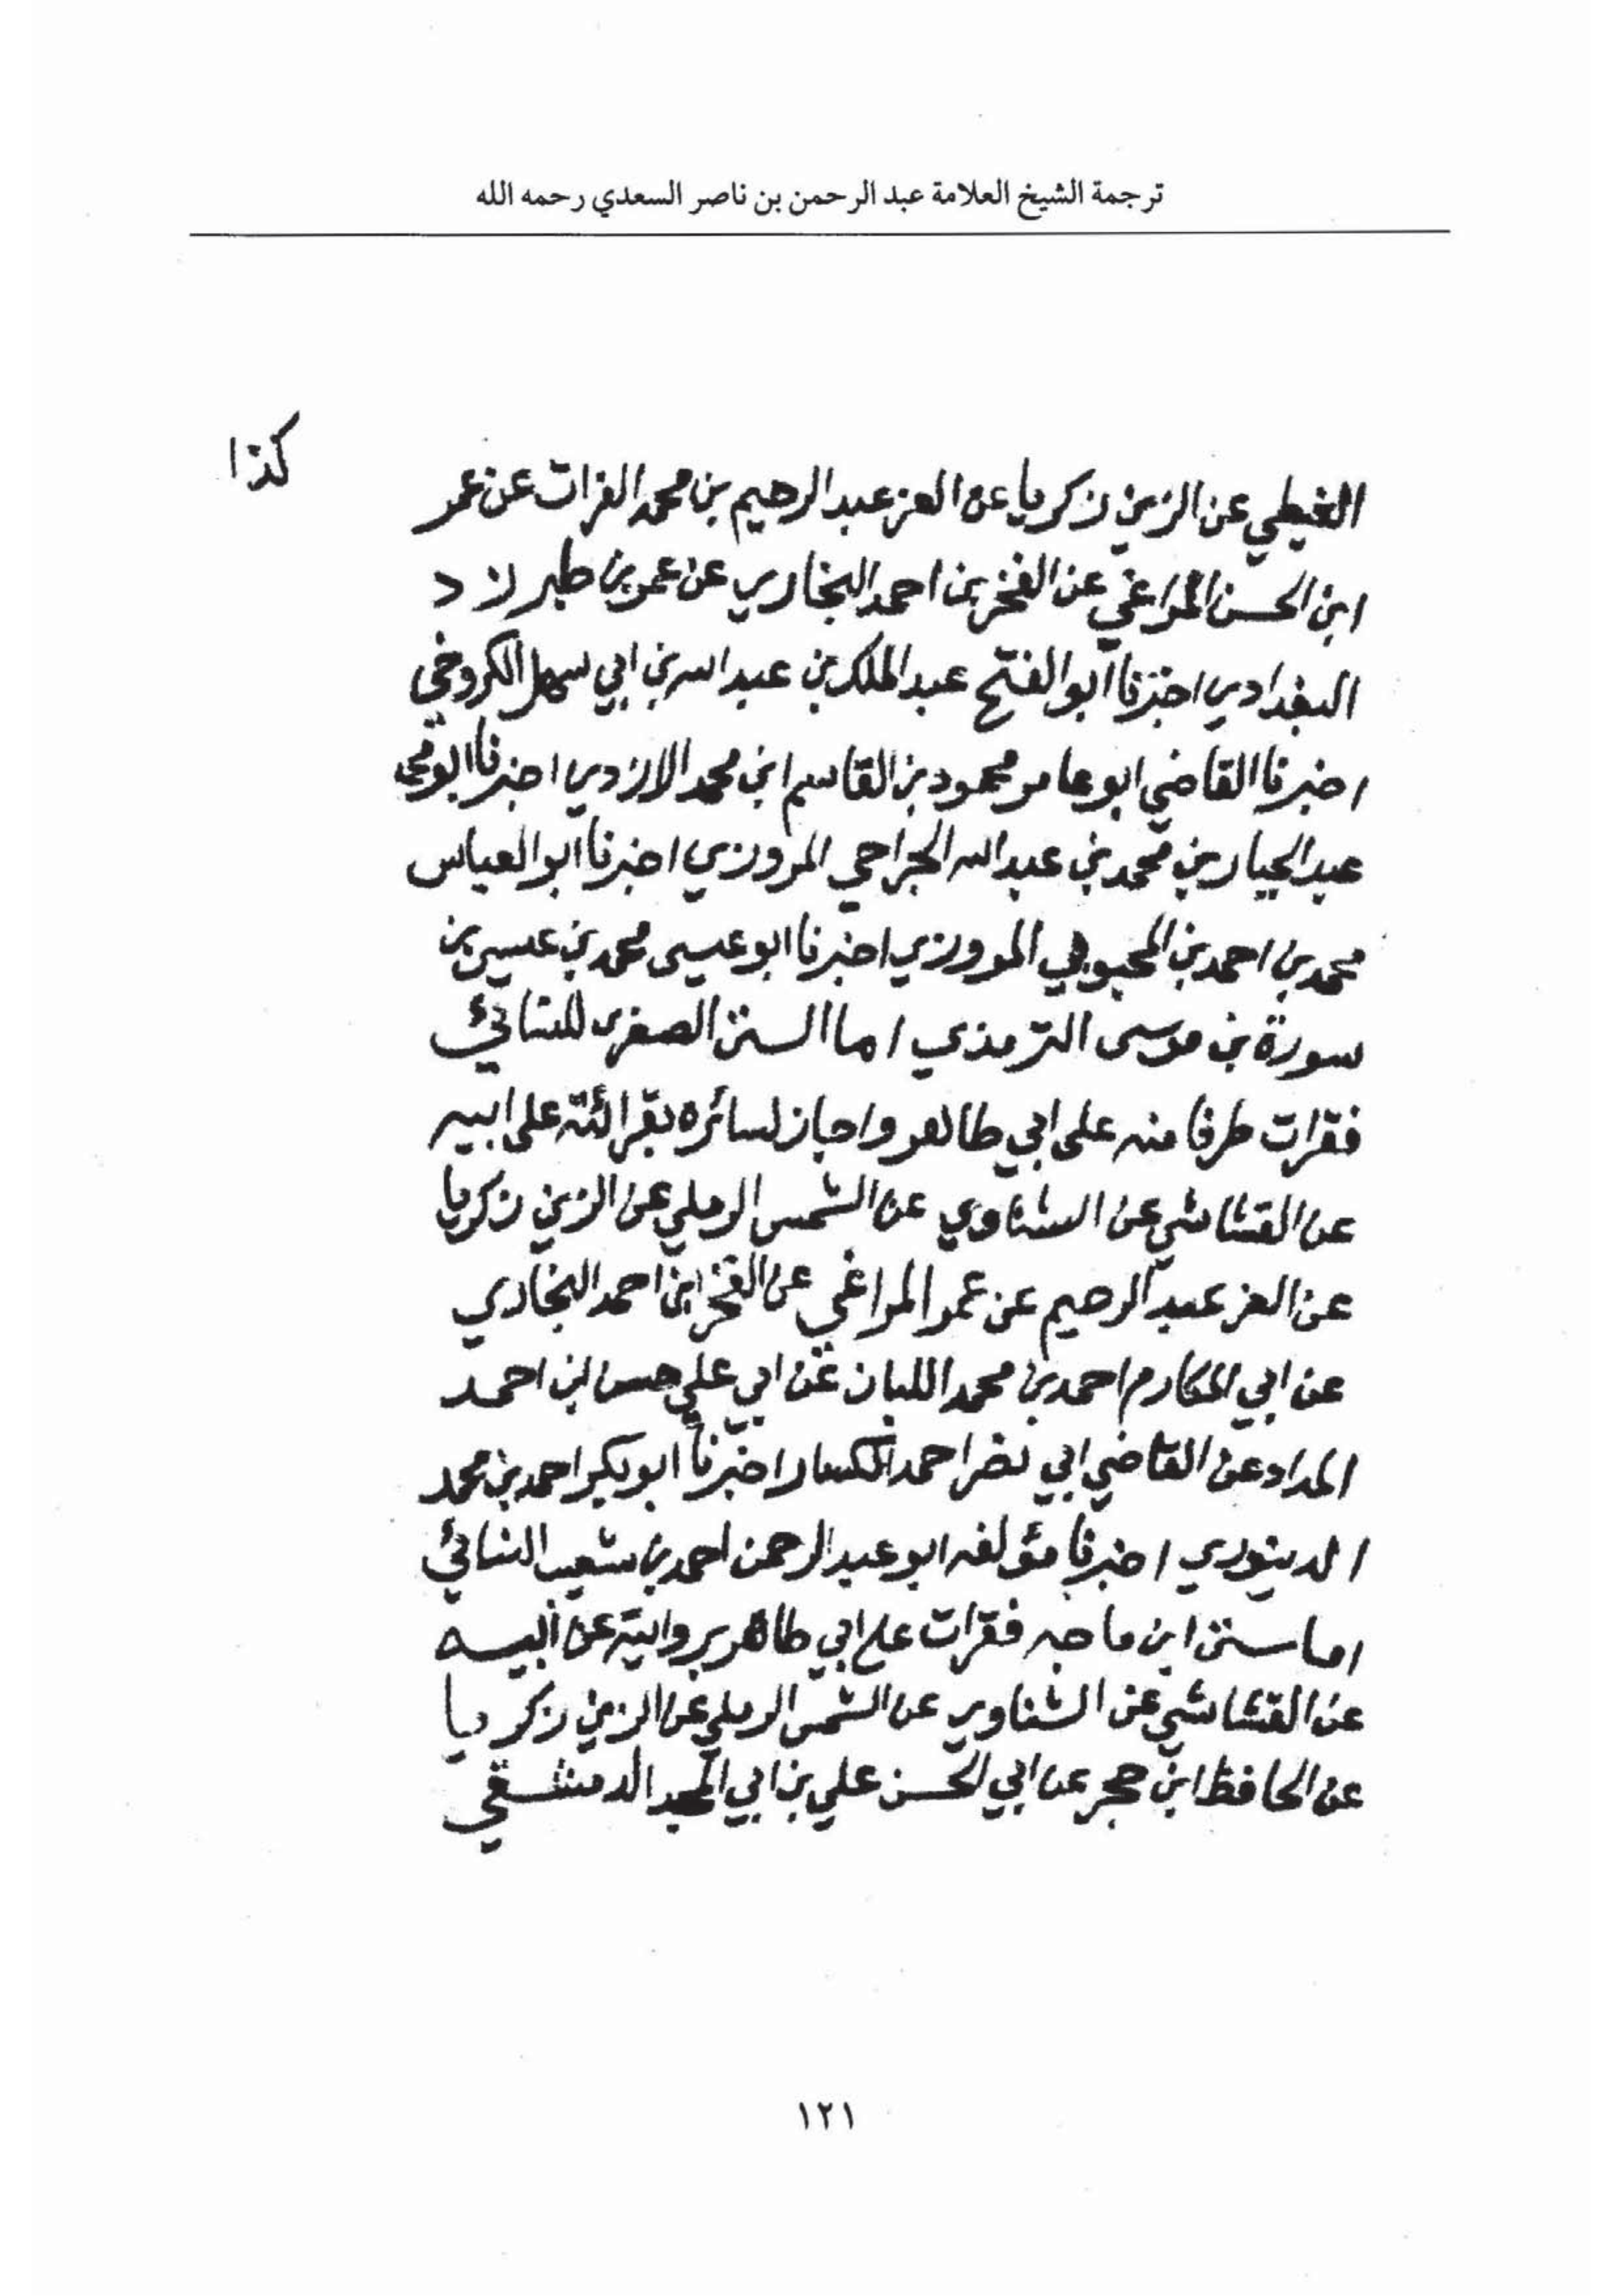 ترجمة الشيخ العلامة عبد الرحمن بن ناصر السعدي رحمه الله
كذا
الغيطي عن الزين زكريا عن العز عبد الرحيم بن محمد الفرات عن عمر
ابن الحسن المراغي عن الفخر بن احمد البخاري عن عمر بن طبرزد
البغدادي اخبرنا ابو الفتح عبد الملك بن عبد الله بن ابي سهل الكروخي
اخبرنا القاضي ابو عامر محمود بن القاسم ابن محمد الازدي اخبرنا ابو محمد
عبد الجبار بن محمد بن عبد الله الجراحي المروزي اخبرنا ابو العباس
محمد بن احمد بن المحبوبي المروزي اخبرنا ابو عيسى محمد بن عيسى بن
سورة بن موسى الترمذي اما السنن الصغرى للنسائي
فقرات طرفا منه على ابي طاهر واجاز لسائره بقرائته على ابيه
عن القشاشي عن الشناوي عن الشمس الرملي عن الزين زكريا
عن العز عبد الرحيم عن عمر المراغي عن الفخر ابن احمد البخاري
عن ابي المكارم احمد بن محمد اللبان عن ابي علي حسن ابن احمد
المداد عن القاضي ابي نصر احمد الكسار اخبرنا ابو بكر احمد بن محمد
الدينوري اخبرنا مؤلفه ابو عبد الرحمن احمد بن شعيب النسائي
اما سنن ابن ماجه فقرات على ابي طاهر بروايته عن ابيه
عن القشاشي عن الشناوي عن الشمس الرملي عن الزين زكريا
عن الحافظ ابن حجر عن ابي الحسن علي بن ابي المجد الدمشقي
١٢١